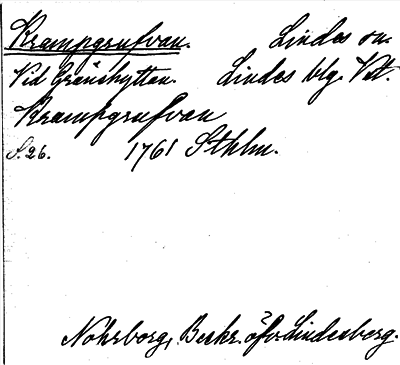 Krampgrufvan. Lindes sn.
Vid Gränshyttan. Lindes blg. Vst.
Krampgrufvan
S. 26. 1761 Sthlm.
Nohrborg, Beskr. öfv. Lindesberg.